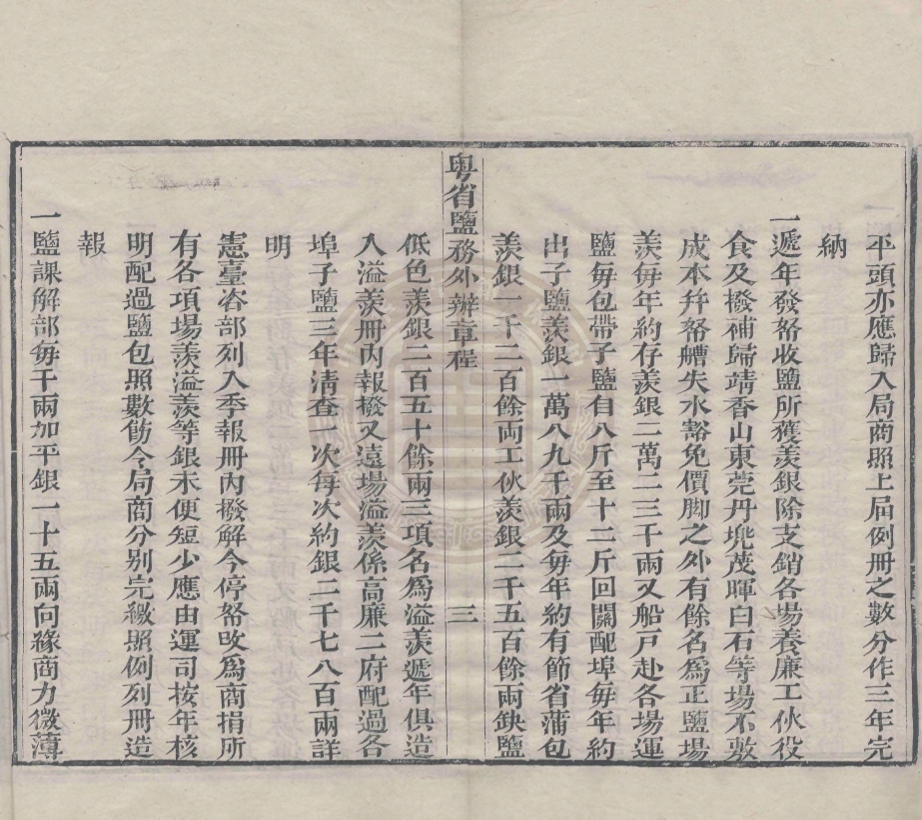 平頭亦應歸入局商照上届例册之數分作三年完
納
一遞年發帑收鹽所獲羨銀除支銷各場養廉工伙役
食及撥補歸靖香山東莞丹兠茂暉白石等場不敷
成本幷帑艚失水豁免價脚之外有餘名爲正鹽場
羨每年約存羨銀二萬二三千兩又船戸赴各場運
鹽每包帶子鹽自八斤至十二斤回關配埠每年約
出子鹽羨銀一萬八九千兩及每年約有節省蒲包
羨銀一千二百餘両工伙羨銀二千五百餘兩鈌鹽
粤省鹽務外辦章程 三
低色羨銀二百五十餘兩三項名爲溢羨遞年俱造
入溢羨册内報撥又遠場溢羨係高廉二府配過各
埠子鹽三年淸查一次每次約銀二千七八百兩詳
明
憲臺咨部列入季報册内撥解今停帑改爲商捐所
有各項場羨溢羨等銀未便短少應由運司按年核
明配過鹽包照數飭令局商分别完繳照例列册造
報
一鹽課解部每千兩加平銀一十五兩向緣商力微薄